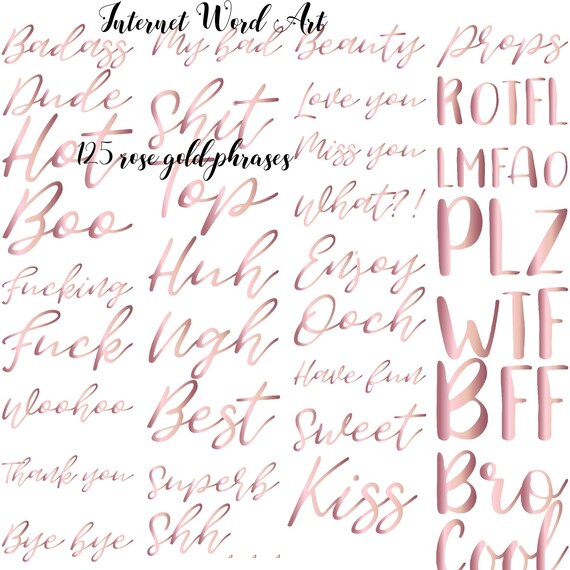 Internet Word Art
125 rose gold phrases
Badass
Dude
Hot
Boo
Fucking
Fuck
Woohoo
Thank you
Bye bye
My bad
Shit
Top
Huh
Ngh
Best
Superb
Shh...
Beauty
Love you
Miss you
What?!
Enjoy
Ooch
Have fun
Sweet
Kiss
Props
ROTFL
LMFAO
PLZ
WTF
BFF
Bro
Cool